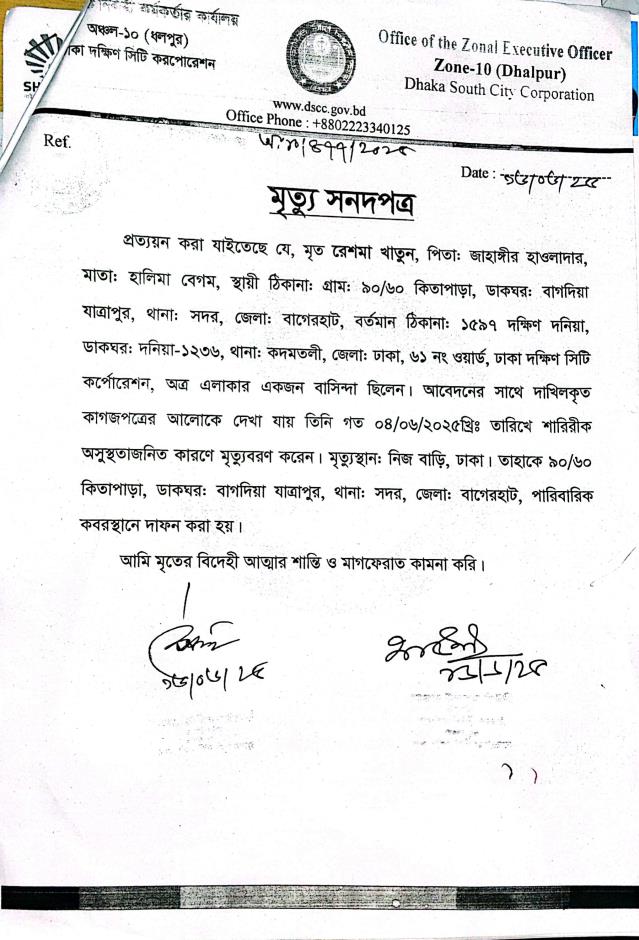 কার্যালয়
অঞ্চল-১০ (ধলপুর)
ঢাকা দক্ষিণ সিটি করপোরেশন
Office of the Zonal Executive Officer
Zone-10 (Dhalpur)
Dhaka South City Corporation
www.dscc.gov.bd
Office Phone : +8802223340125
Ref.
Date :
মৃত্যু সনদপত্র
প্রত্যয়ন করা যাইতেছে যে, মৃত রেশমা খাতুন, পিতা: জাহাঙ্গীর হাওলাদার,
মাতা: হালিমা বেগম, স্থায়ী ঠিকানা: গ্রাম: ৯০/৬০ কিতাপাড়া, ডাকঘর: বাগদিয়া
যাত্রাপুর, থানা: সদর, জেলা: বাগেরহাট, বর্তমান ঠিকানা: ১৫৯৭ দক্ষিণ দনিয়া,
ডাকঘর: দনিয়া-১২৩৬, থানা: কদমতলী, জেলা: ঢাকা, ৬১ নং ওয়ার্ড, ঢাকা দক্ষিণ সিটি
কর্পোরেশন, অত্র এলাকার একজন বাসিন্দা ছিলেন। আবেদনের সাথে দাখিলকৃত
কাগজপত্রের আলোকে দেখা যায় তিনি গত ০৪/০৬/২০২৫খ্রিঃ তারিখে শারিরীক
অসুস্থতাজনিত কারণে মৃত্যুবরণ করেন। মৃত্যুস্থান: নিজ বাড়ি, ঢাকা। তাহাকে ৯০/৬০
কিতাপাড়া, ডাকঘর: বাগদিয়া যাত্রাপুর, থানা: সদর, জেলা: বাগেরহাট, পারিবারিক
কবরস্থানে দাফন করা হয়।
আমি মৃতের বিদেহী আত্মার শান্তি ও মাগফেরাত কামনা করি।